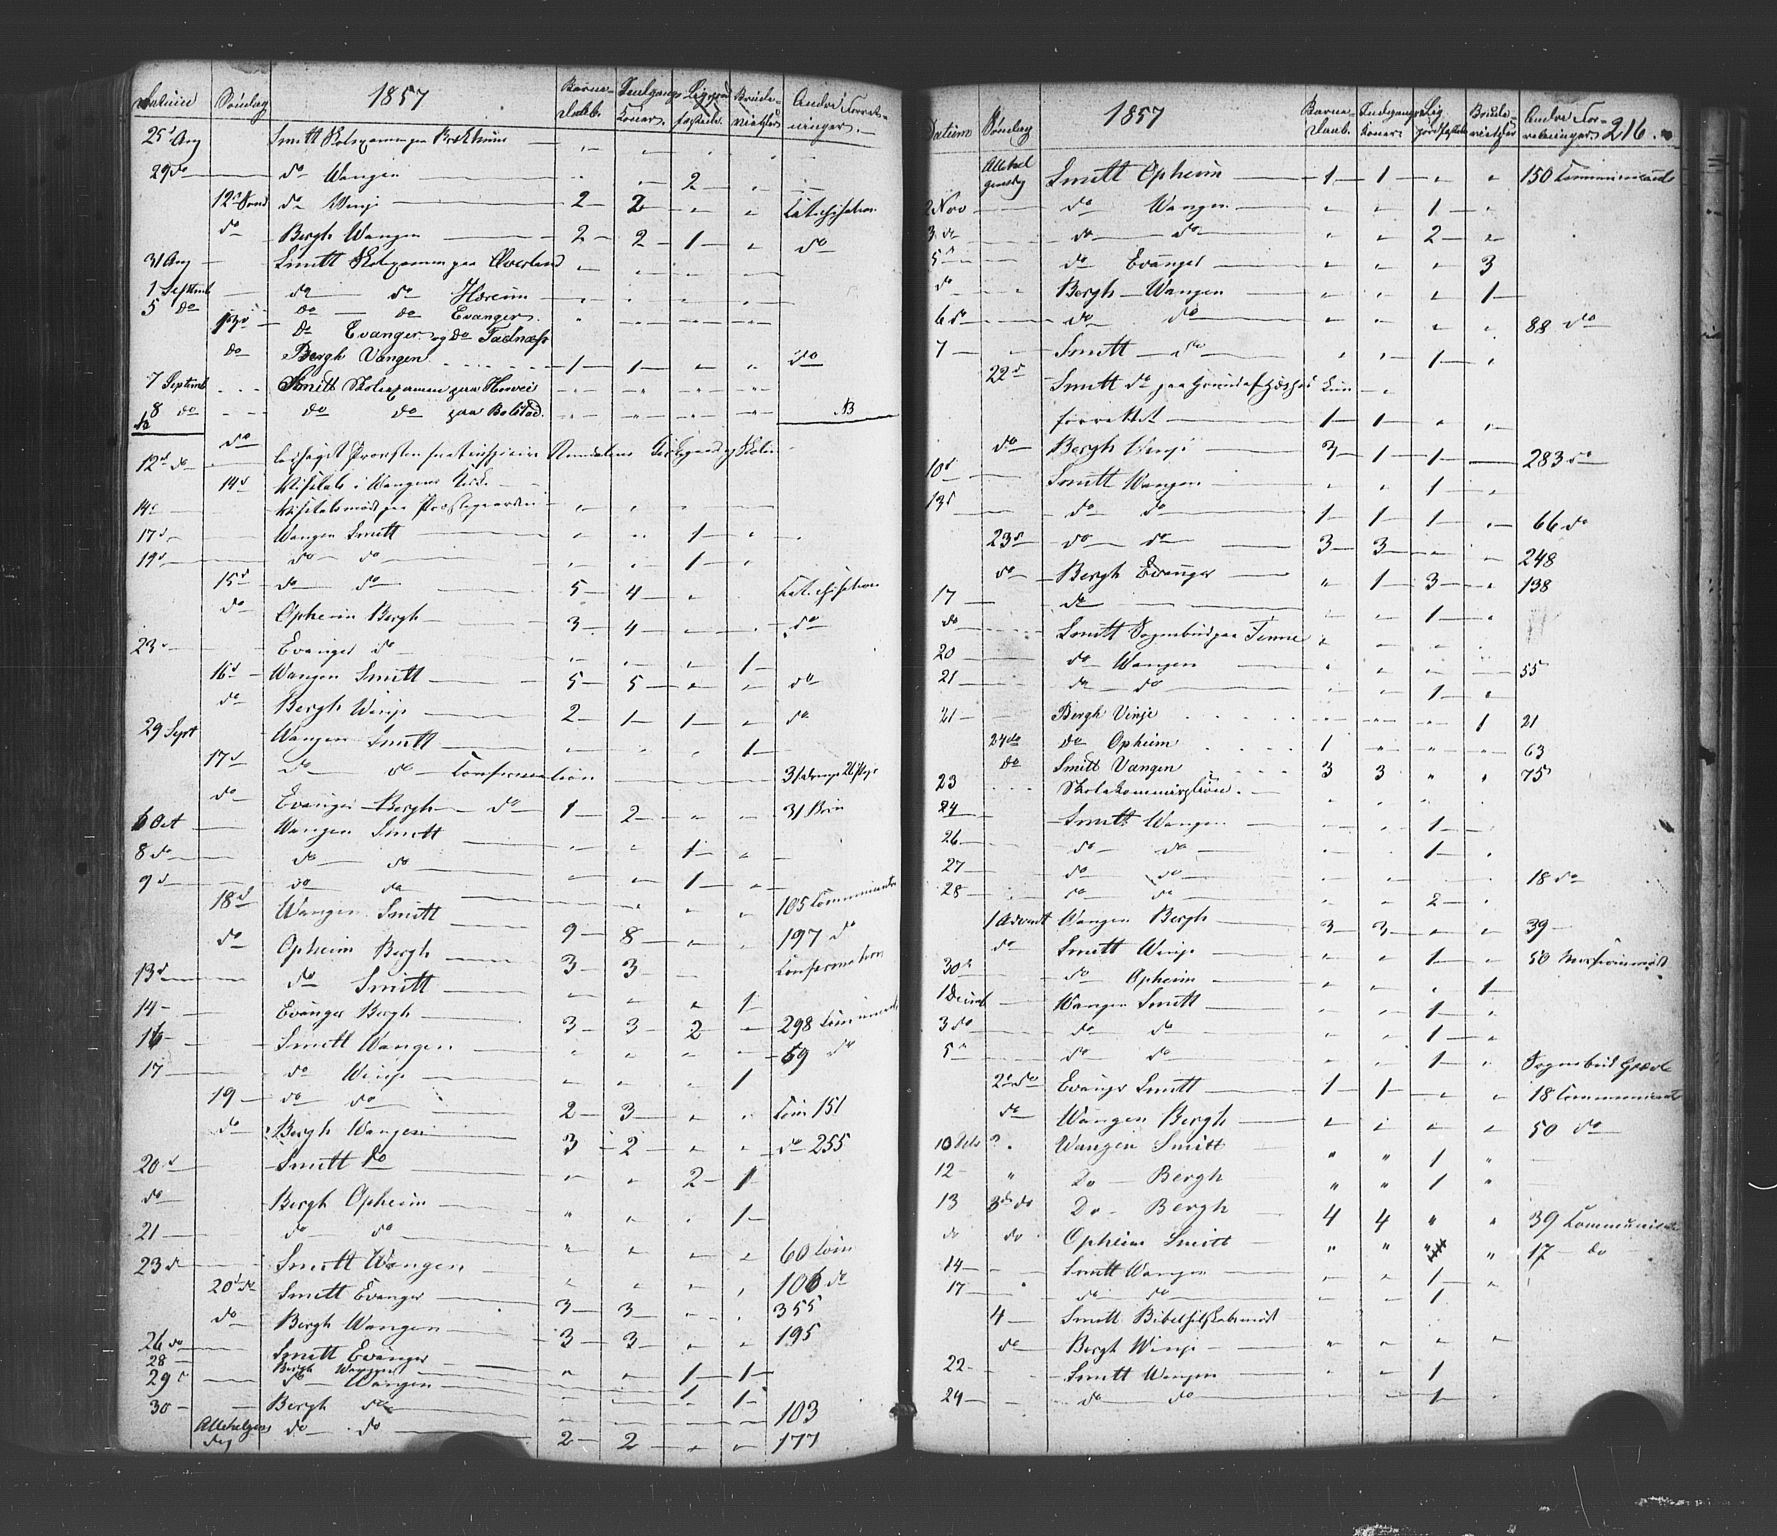 Datum Søndag 1857 Barne- Daab. Indgangs Koner. Brude- vielser Andre Forret- ninger.
25d Aug Smitt Skolexamen paa
29 do do Wangen 2
12te Sønd do Winje 2 2 Katechisation
do Bergh Wangen 2 2 1 do
31 Aug Smitt Skolexamen paa
1 Septemb do do
5 do do do Evanger
13d do Evanger og do
do Bergh Vangen 1 1 do
7 Septemb Smitt Skolexamen paa
8 do do do paa Bolstad NB
do
12d do Provsten
14d Visitats i Wangens Kirke
14d Visitatsmøde paa Præstegaarden
17d Wangen Smitt 1
19d do do 1
15d do do 5 4 Katechisation
do Opheim Bergh 3 4 do
23 Evanger do 1
16d Wangen Smitt 5 5 do
do Bergh Winje 2 1 1 do
29 Sept Wangen Smitt 1
17d do do Confirmation
do Evanger Bergh do 1 2 31 Børn
6 Oct Wangen Smitt 1
8 do do do 1
9d do do
18d Wangen Smitt 9 8 105 Communicanter
do Opheim Bergh 3 3 197 do
13d do Smitt 1 Confirmation
14 Evanger Bergh 3 3 2 298 Communicanter
16 Smitt Wangen 69 do
17 do Winje 1
19 do do 2 3 Com 151
do Bergh Wangen 3 2 do 255
20d Smitt do 2 1
do Bergh Opheim 1
21 do do 60 Com
23d Smitt Wangen 106 do
20d do Smitt Evanger 3 3 355
do Bergh Wangen 3 3 195
26 do Smitt Evanger 1 1
28 Bergh Wangen 1 1
29d do Wangen
30 Bergh do 103
Allehelgens dag do do 2 2 177
Datum Søndag 1857 Barne- Daab. Indgangs Koner. Lig Jordfæstelse Brude- vielser Andre For- retninger 216.
Allehel gensdag Smitt Opheim 1 1 150 Communicanter
2 Nov do Wangen 1
3 do do do 2
5d do Evanger 3
do Bergh Wangen 1
6 do do do 88 do
7 Smitt do 1
22d Smitt do paa
forrettet 1 1
do Bergh Winje 3 1 1 283 do
10d Smitt Wangen 1
13d do do 1 1 1 66 do
23d do do 3 3 248
do Bergh Evanger 1 3 138
17 do 1
do Smitt Sognebud paa
20 do Wangen 55
21 do do 1
21 Bergh Vinje 1 21
24do do Opheim 1 63
do Smitt Vangen 3 3 75
23 Skolekommission
24 Smitt Wangen 1
26 do do 1
27 do do 18 do
28 do do 2
1 Advent Wangen Bergh 3 3 39
do Smitt Winje 1 50 Missionsmøde
30d do Opheim 1
1 Decemb Wangen Smitt 1
3 do do do 1
5d do do 1 Sognebud
2d do Evanger Smitt 1 1 18 Communicant
do Wangen Bergh 50 do
10 Wangen Smitt 1
12 Do Bergh 1
13 3de do Do Bergh 4 4 39 Communicanter
do do Opheim Smitt 17 do
14 Smitt Wangen 1
17 do do 1
4 Smitt Bibelselskabsmøde
do Bergh Winje
22 Smitt Wangen 1
24 do do 1